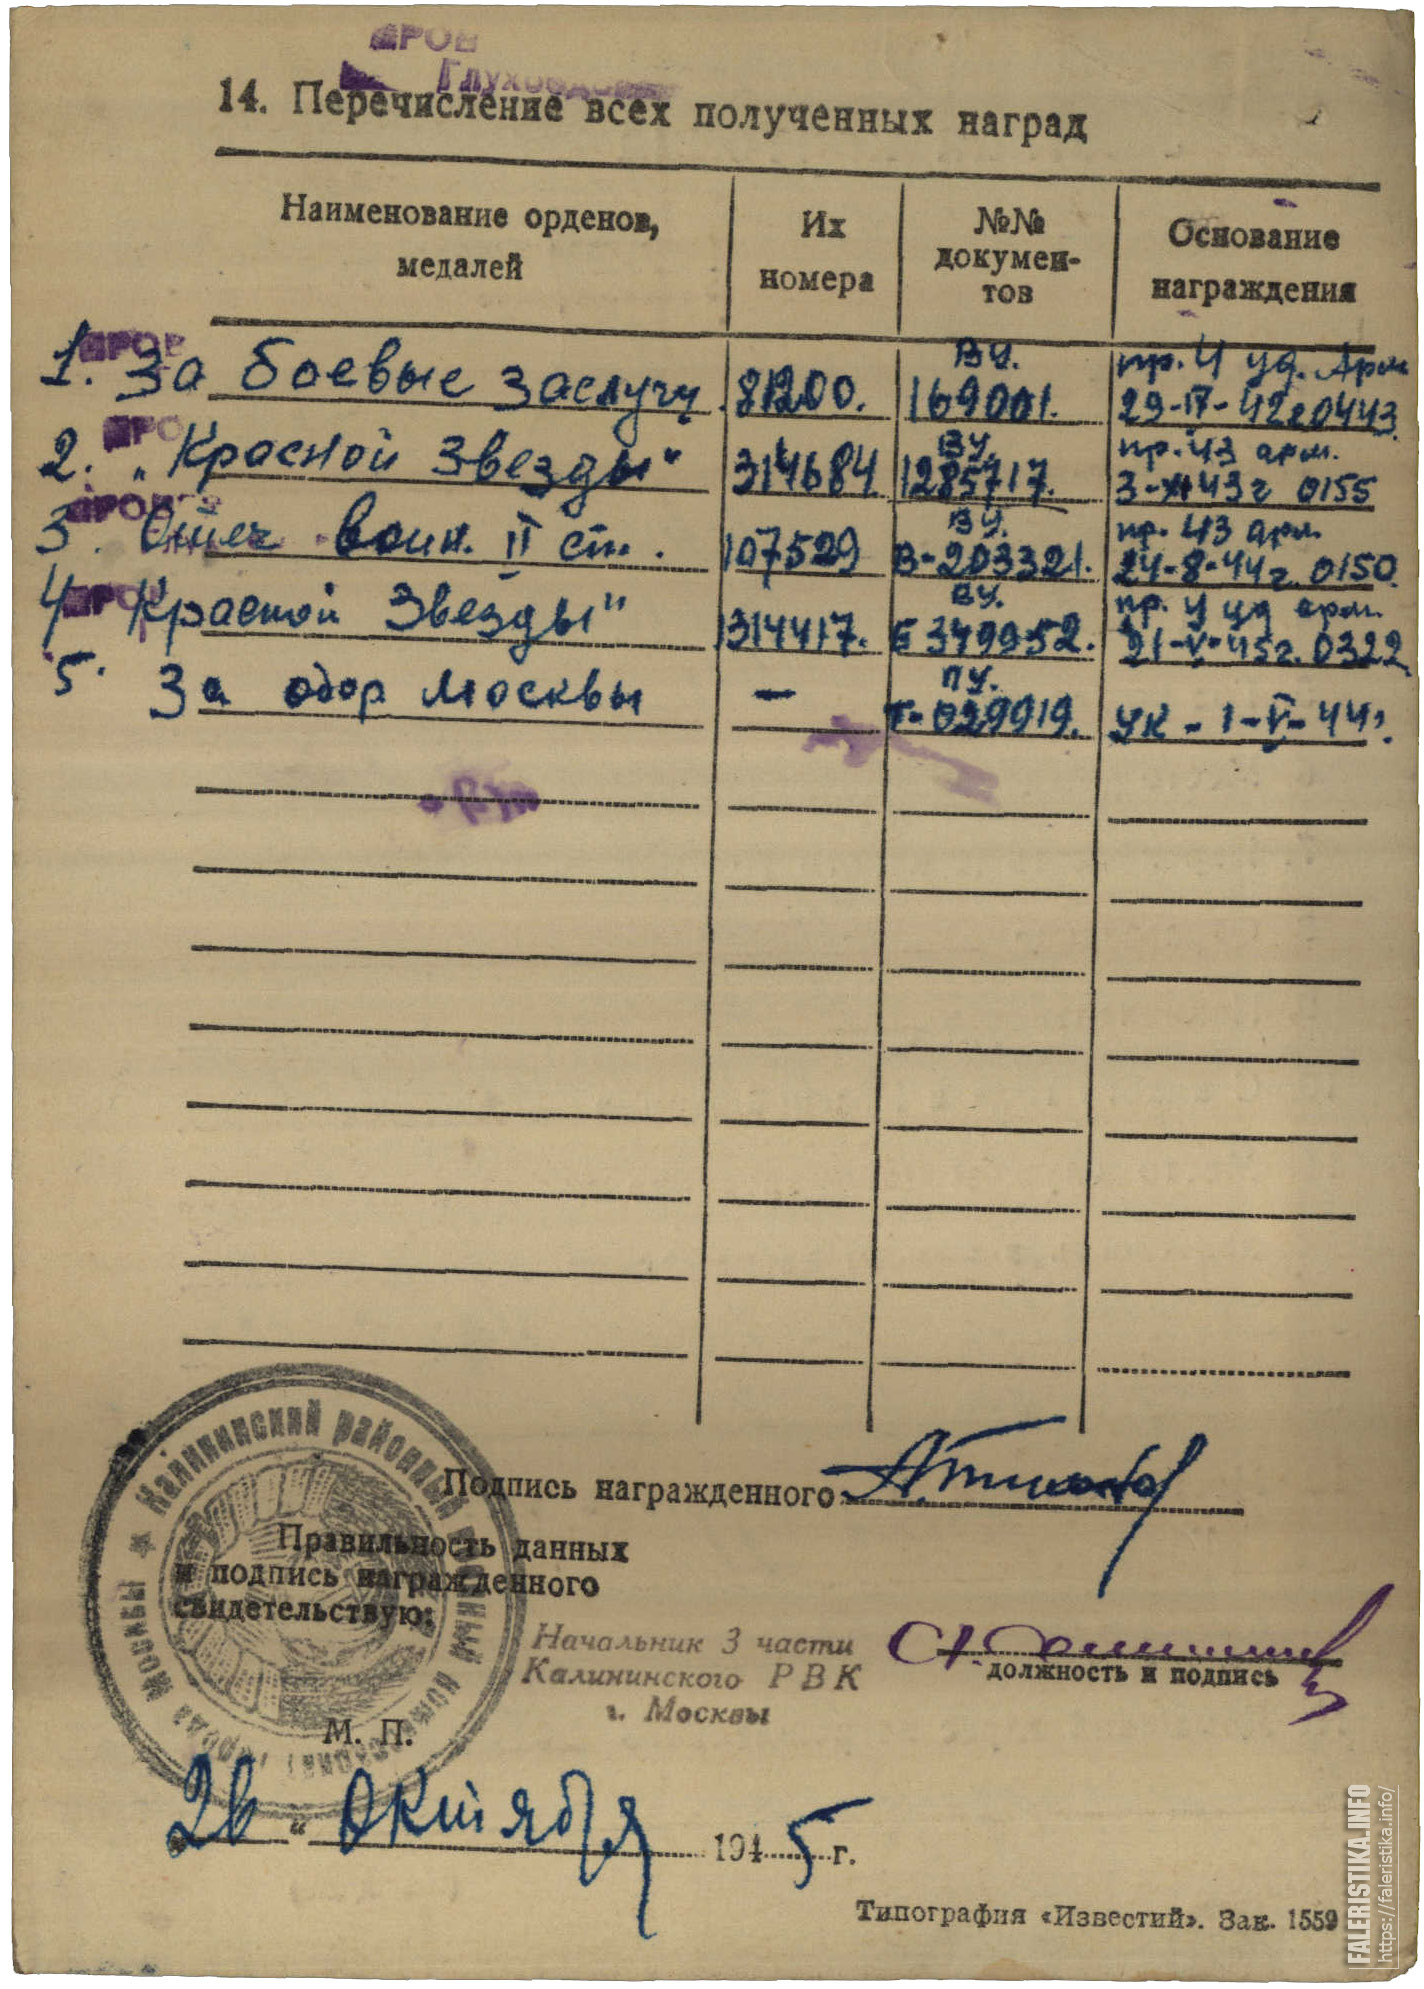 ПРОВ
Глухов
14. Перечисление всех полученных наград
Наименование орденов, медалей
Их номера
№№ докумен-тов
Основание награждения
ПРОВ
1. За боевые заслуги 81200. ВУ. 169001. пр. 4 уд. Арм 29-IV-42г 0443
ПРО
2. „Красной Звезды" 314684 ВУ. 1285717. пр. 43 арм. 3-XI 43г 0155
ПРОВ
3. Отеч воин. II ст. 107529 ВУ. В-203321. пр. 43 арм 24-8-44г. 0150
ПРОВ
4 Красной Звезды" 1314417. ВУ. Е 349952. пр. 4 уд арм. 21-V-45г. 0322
5. За обор Москвы — ПУ. Т-029919. УК - 1-V-44г.
Подпись награжденного
Калининский районный военный комиссариат города Москвы
Правильность данных
и подпись награжденного
свидетельствую:
Начальник 3 части
Калининского РВК
г. Москвы
должность и подпись
М. П.
26 " Октября 1945 г.
Типография «Известий». Зак. 1559
FALERISTIKA.INFO
https://faleristika.info/